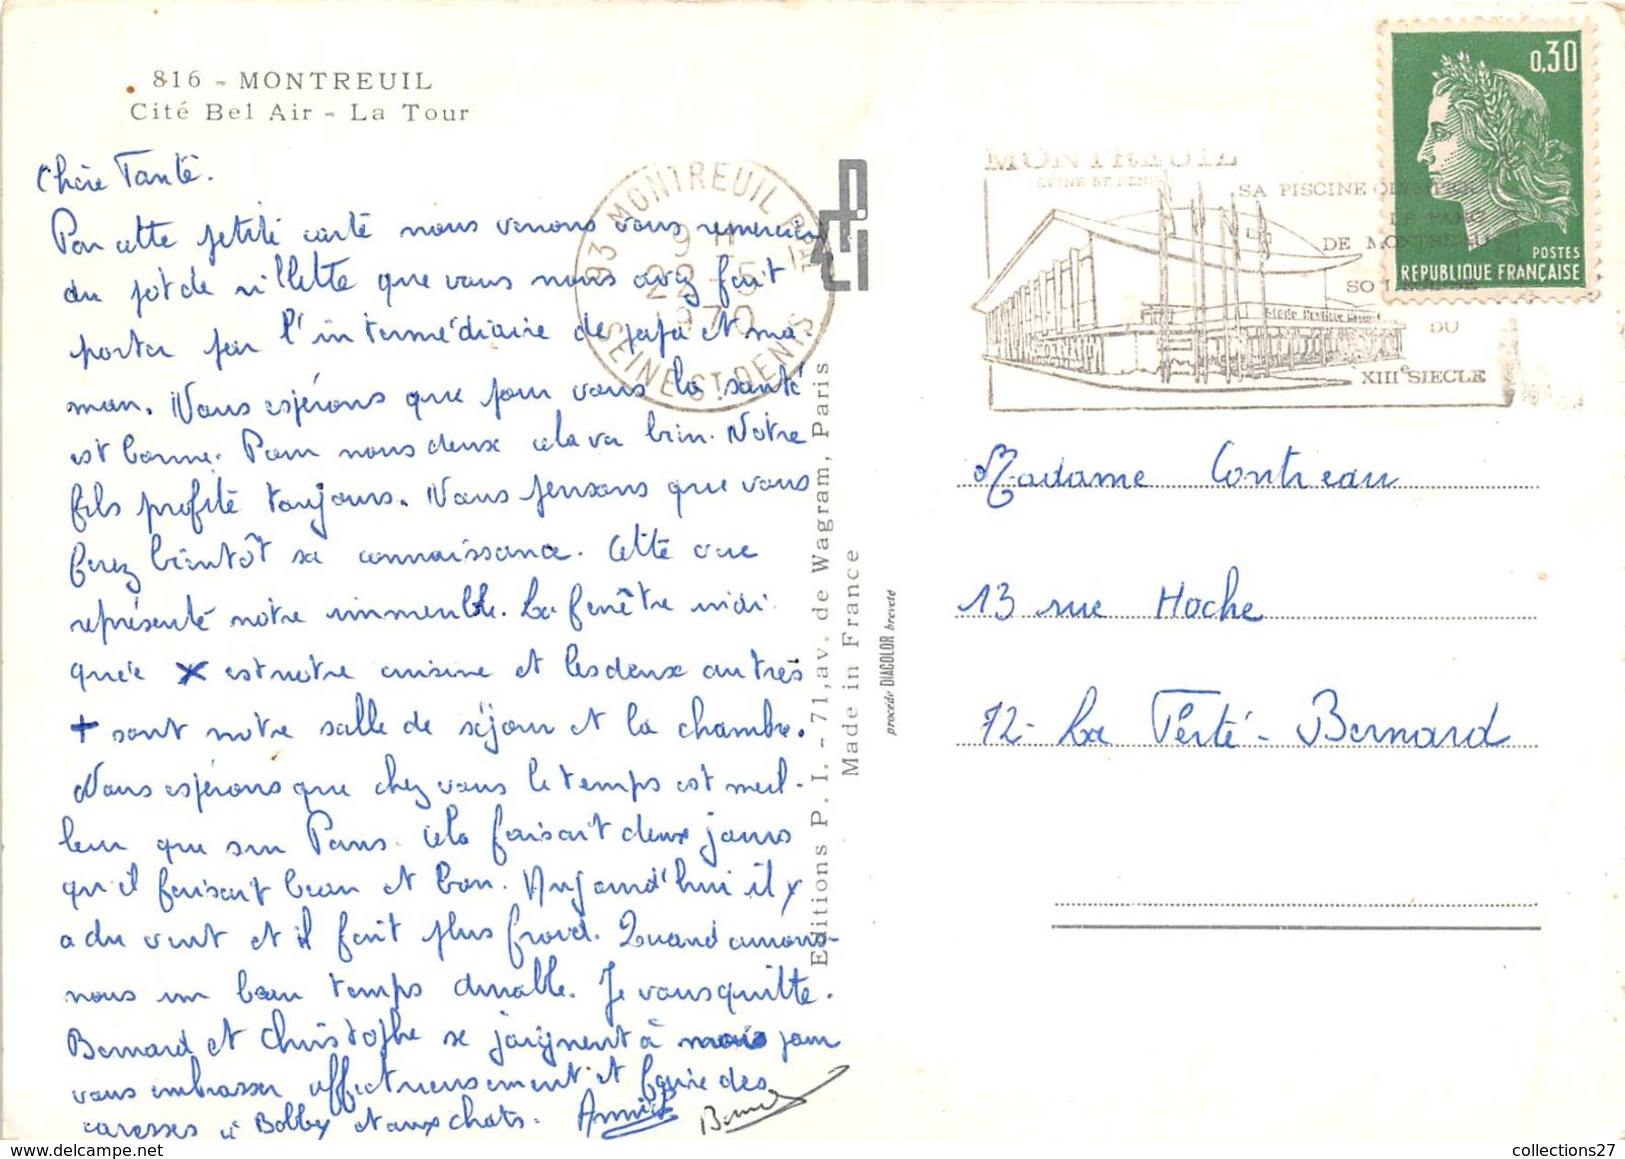 816 - MONTREUIL
Cité Bel Air - La Tour
Chère Tante.
Par cette petite carte nous venons vous remercier
du pot de rillette que vous nous avez fait
porter par l'intermédiaire de papa et ma-
man. Nous espérons que pour vous la santé
est bonne. Pour nous deux cela va bien. Notre
fils profite toujours. Nous pensons que vous
ferez bientôt sa connaissance. Cette vue
représente notre immeuble. La fenêtre indi-
quée x est notre cuisine et les deux autres
+ sont notre salle de séjour et la chambre.
Nous espérons que chez vous le temps est meil-
leur que sur Paris. Cela faisait deux jours
qu'il faisait beau et bon. Aujourd'hui il y
a du vent et il fait plus froid. Quand aurons-
nous un beau temps durable. Je vous quitte.
Bernard et Christophe se joignent à moi pour
vous embrasser affectueusement et faire des
caresses à Bobby et aux chats. Annick Bernard
93 MONTREUIL PPAL
9 H
22 -5
1970
SEINE ST DENIS
Editions P. I. - 71, av. de Wagram, Paris
Made in France
procédé DIACOLOR breveté
MONTREUIL
SEINE ST DENIS
SA PISCINE OLYMPIQUE
LE PARC
DE MONTREAU
SON EGLISE
DU
XIIIe SIECLE
0,30
POSTES
REPUBLIQUE FRANÇAISE
Madame Contreau
13 rue Hoche
72 - La Ferté - Bernard
collections27